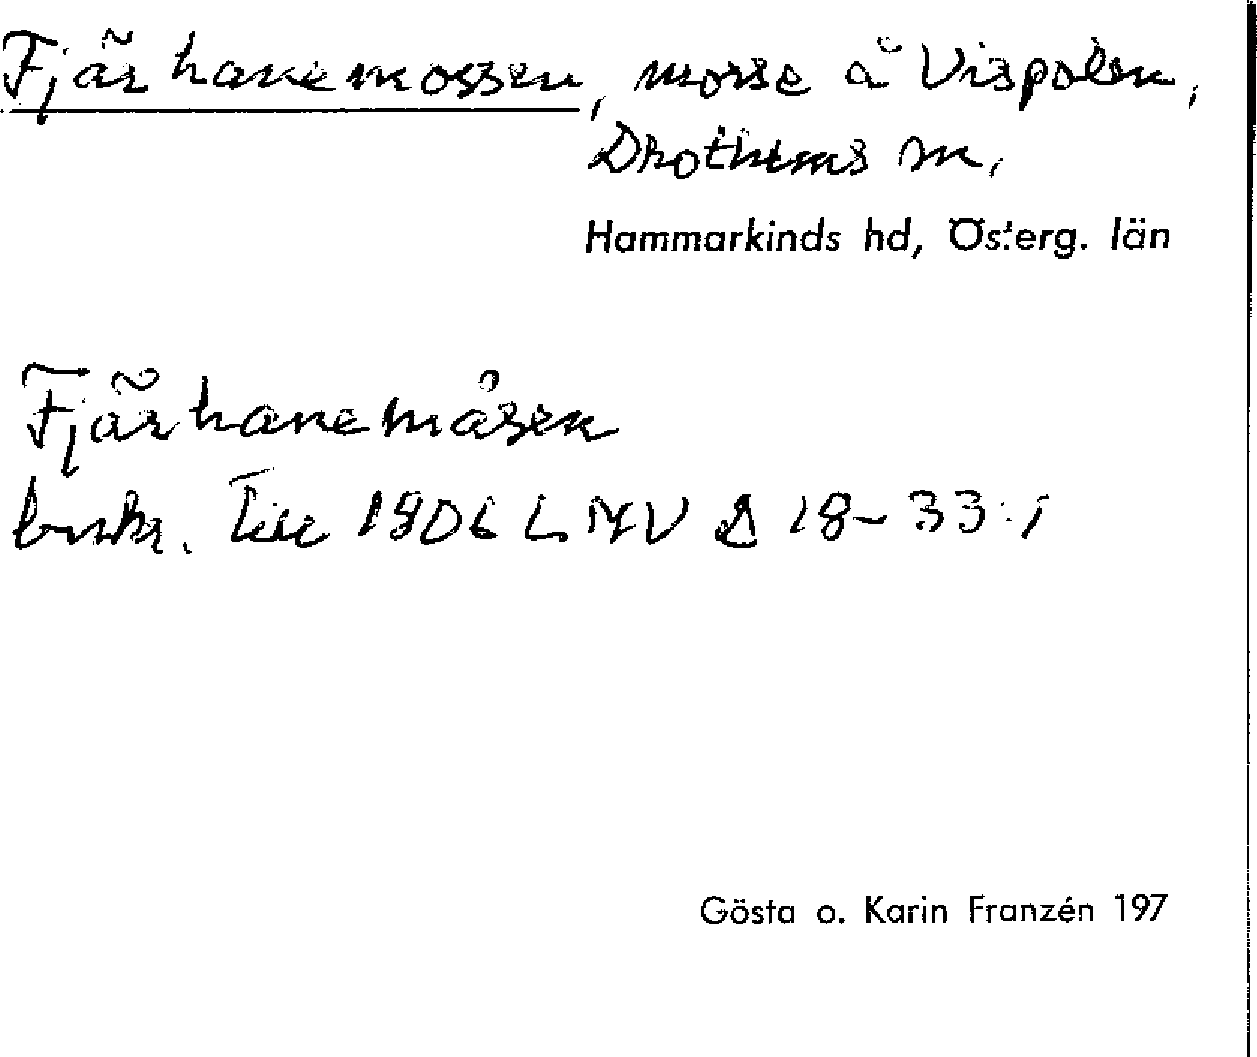 Fjärhanemossen, mosse å Vispolen,
Drothems sn,
Hammarkinds hd, Österg. län
Fjärhanemåsen
buskr. 1806 LMV D 18-33:1
Gösta o. Karin Franzén 197